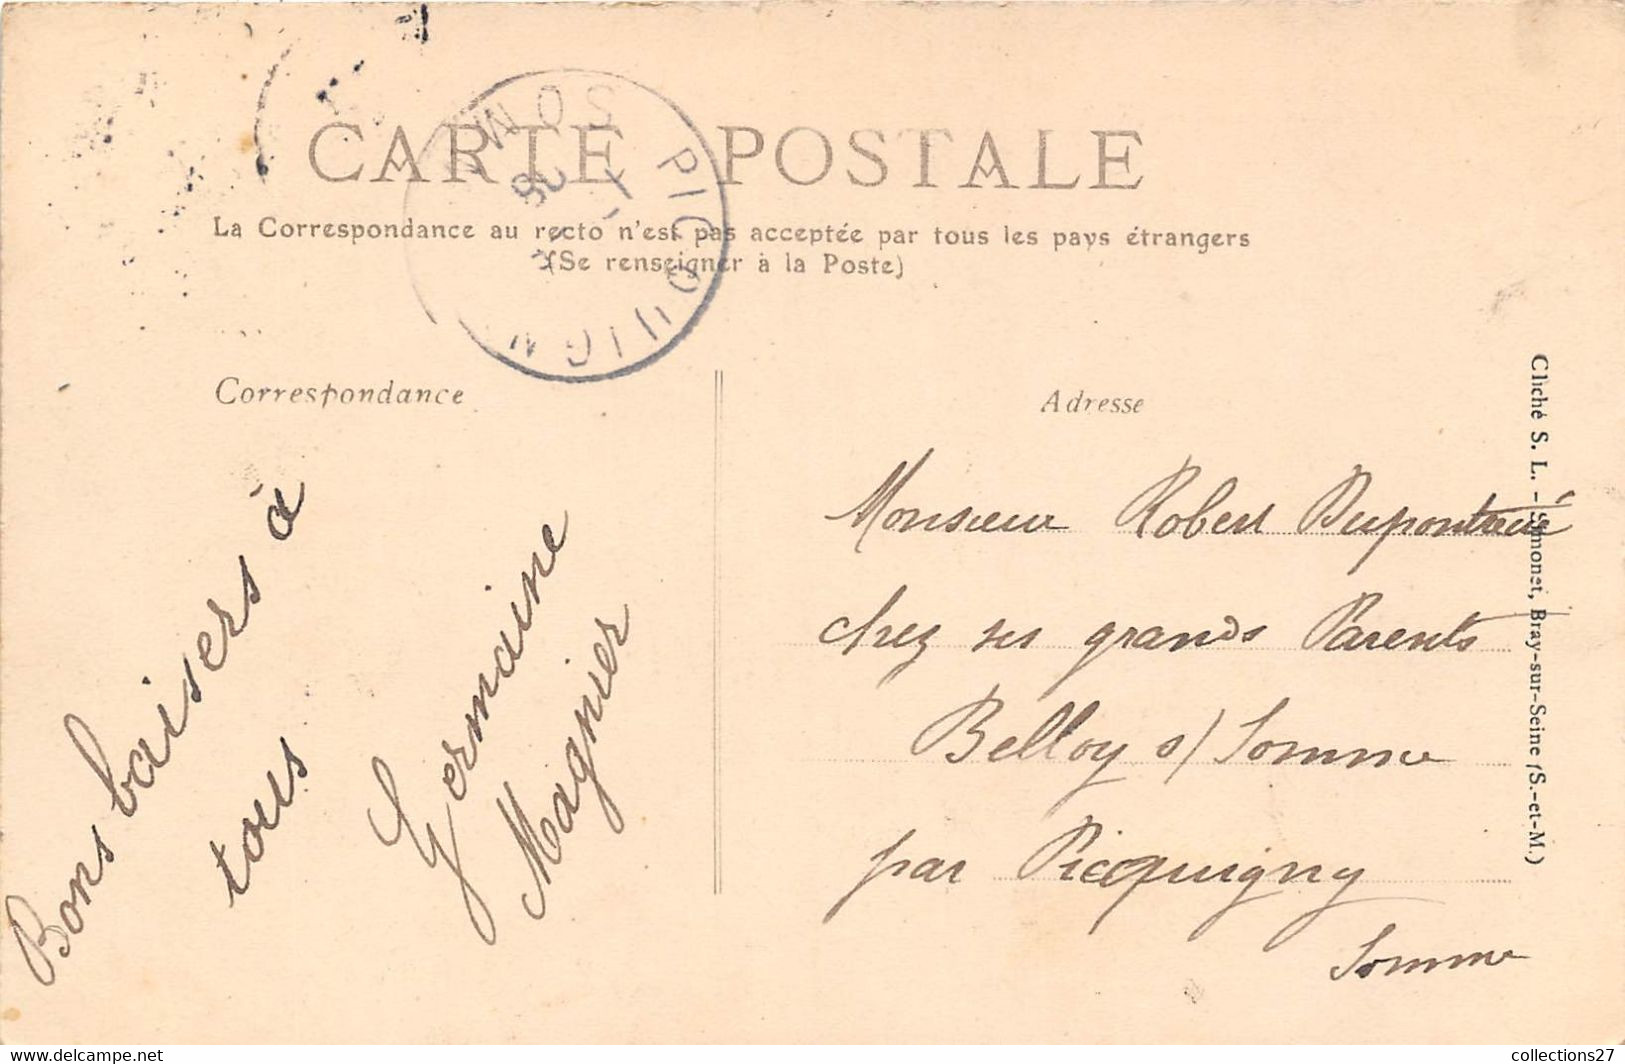 CARTE POSTALE
La Correspondance au recto n'est pas acceptée par tous les pays étrangers
(Se renseigner à la Poste)
PICQUIGN
SOM
Correspondance
Bons baisers à
tous
Germaine
Magnier
Adresse
Monsieur Robert
chez ses grands Parents
Belloy s/ Somme
par Picquigny
Somme
Cliché S. L. - Simonet, Bray-sur-Seine (S.-et-M.)
collections27